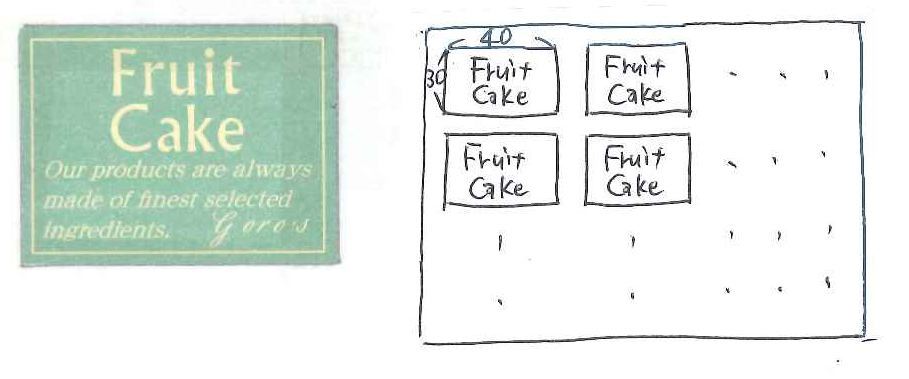 Fruit
Cake
Our products are always
made of finest selected
ingredients. Goro's
40
30
Fruit
Cake
Fruit
Cake
Fruit
Cake
Fruit
Cake